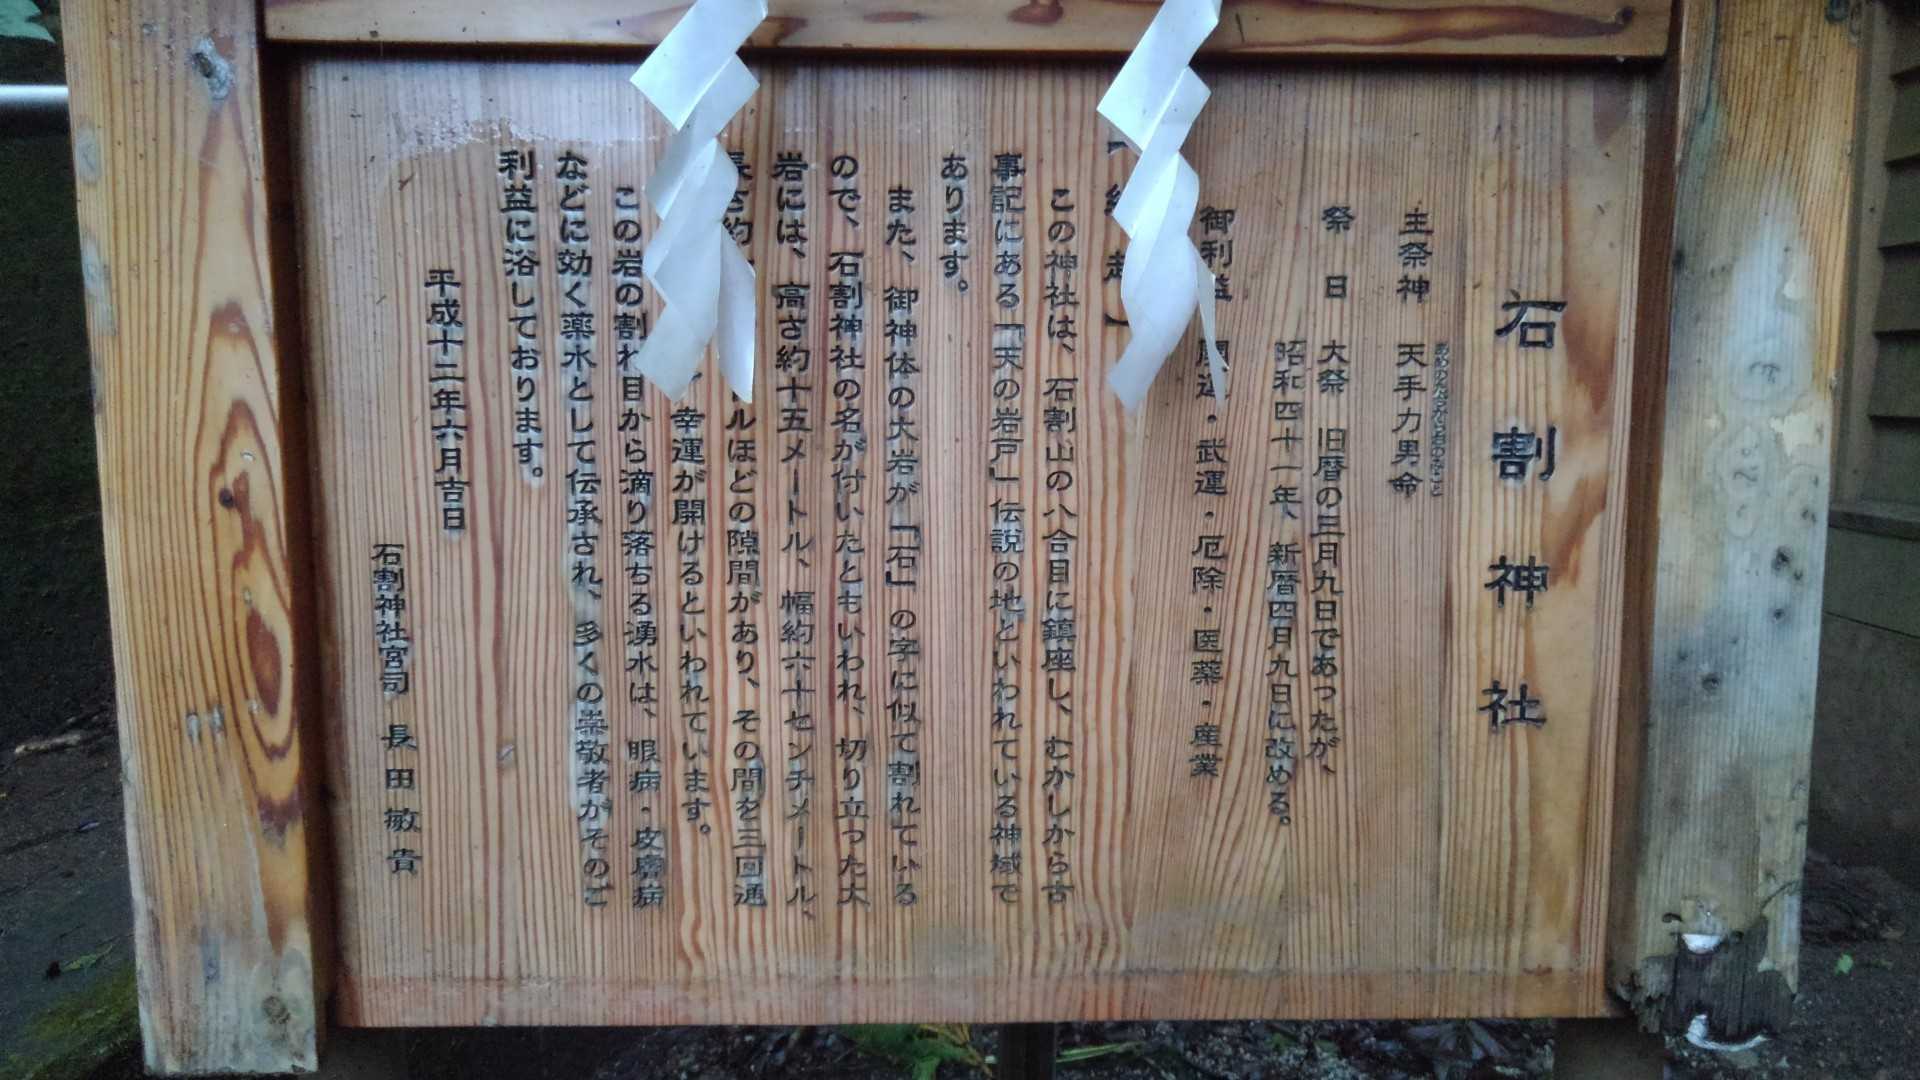 石割神社
主祭神 天手力男命
あめのたぢからおのみこと
祭日 大祭 旧暦の三月九日であったが、
昭和四十一年、新暦四月九日に改める。
御利益 開運・武運・厄除・医薬・産業
この神社は、石割山の八合目に鎮座し、むかしから古
事記にある「天の岩戸」伝説の地といわれている神域で
あります。
また、御神体の大岩が「石」の字に似て割れている
ので、石割神社の名が付いたともいわれ、切り立った大
岩には、高さ約十五メートル、幅約六十センチメートル、
長さ約 ルほどの隙間があり、その間を三回通
幸運が開けるといわれています。
この岩の割れ目から滴り落ちる湧水は、眼病・皮膚病
などに効く薬水として伝承され、多くの崇敬者がそのご
利益に浴しております。
平成十二年六月吉日
石割神社宮司 長田敏貴